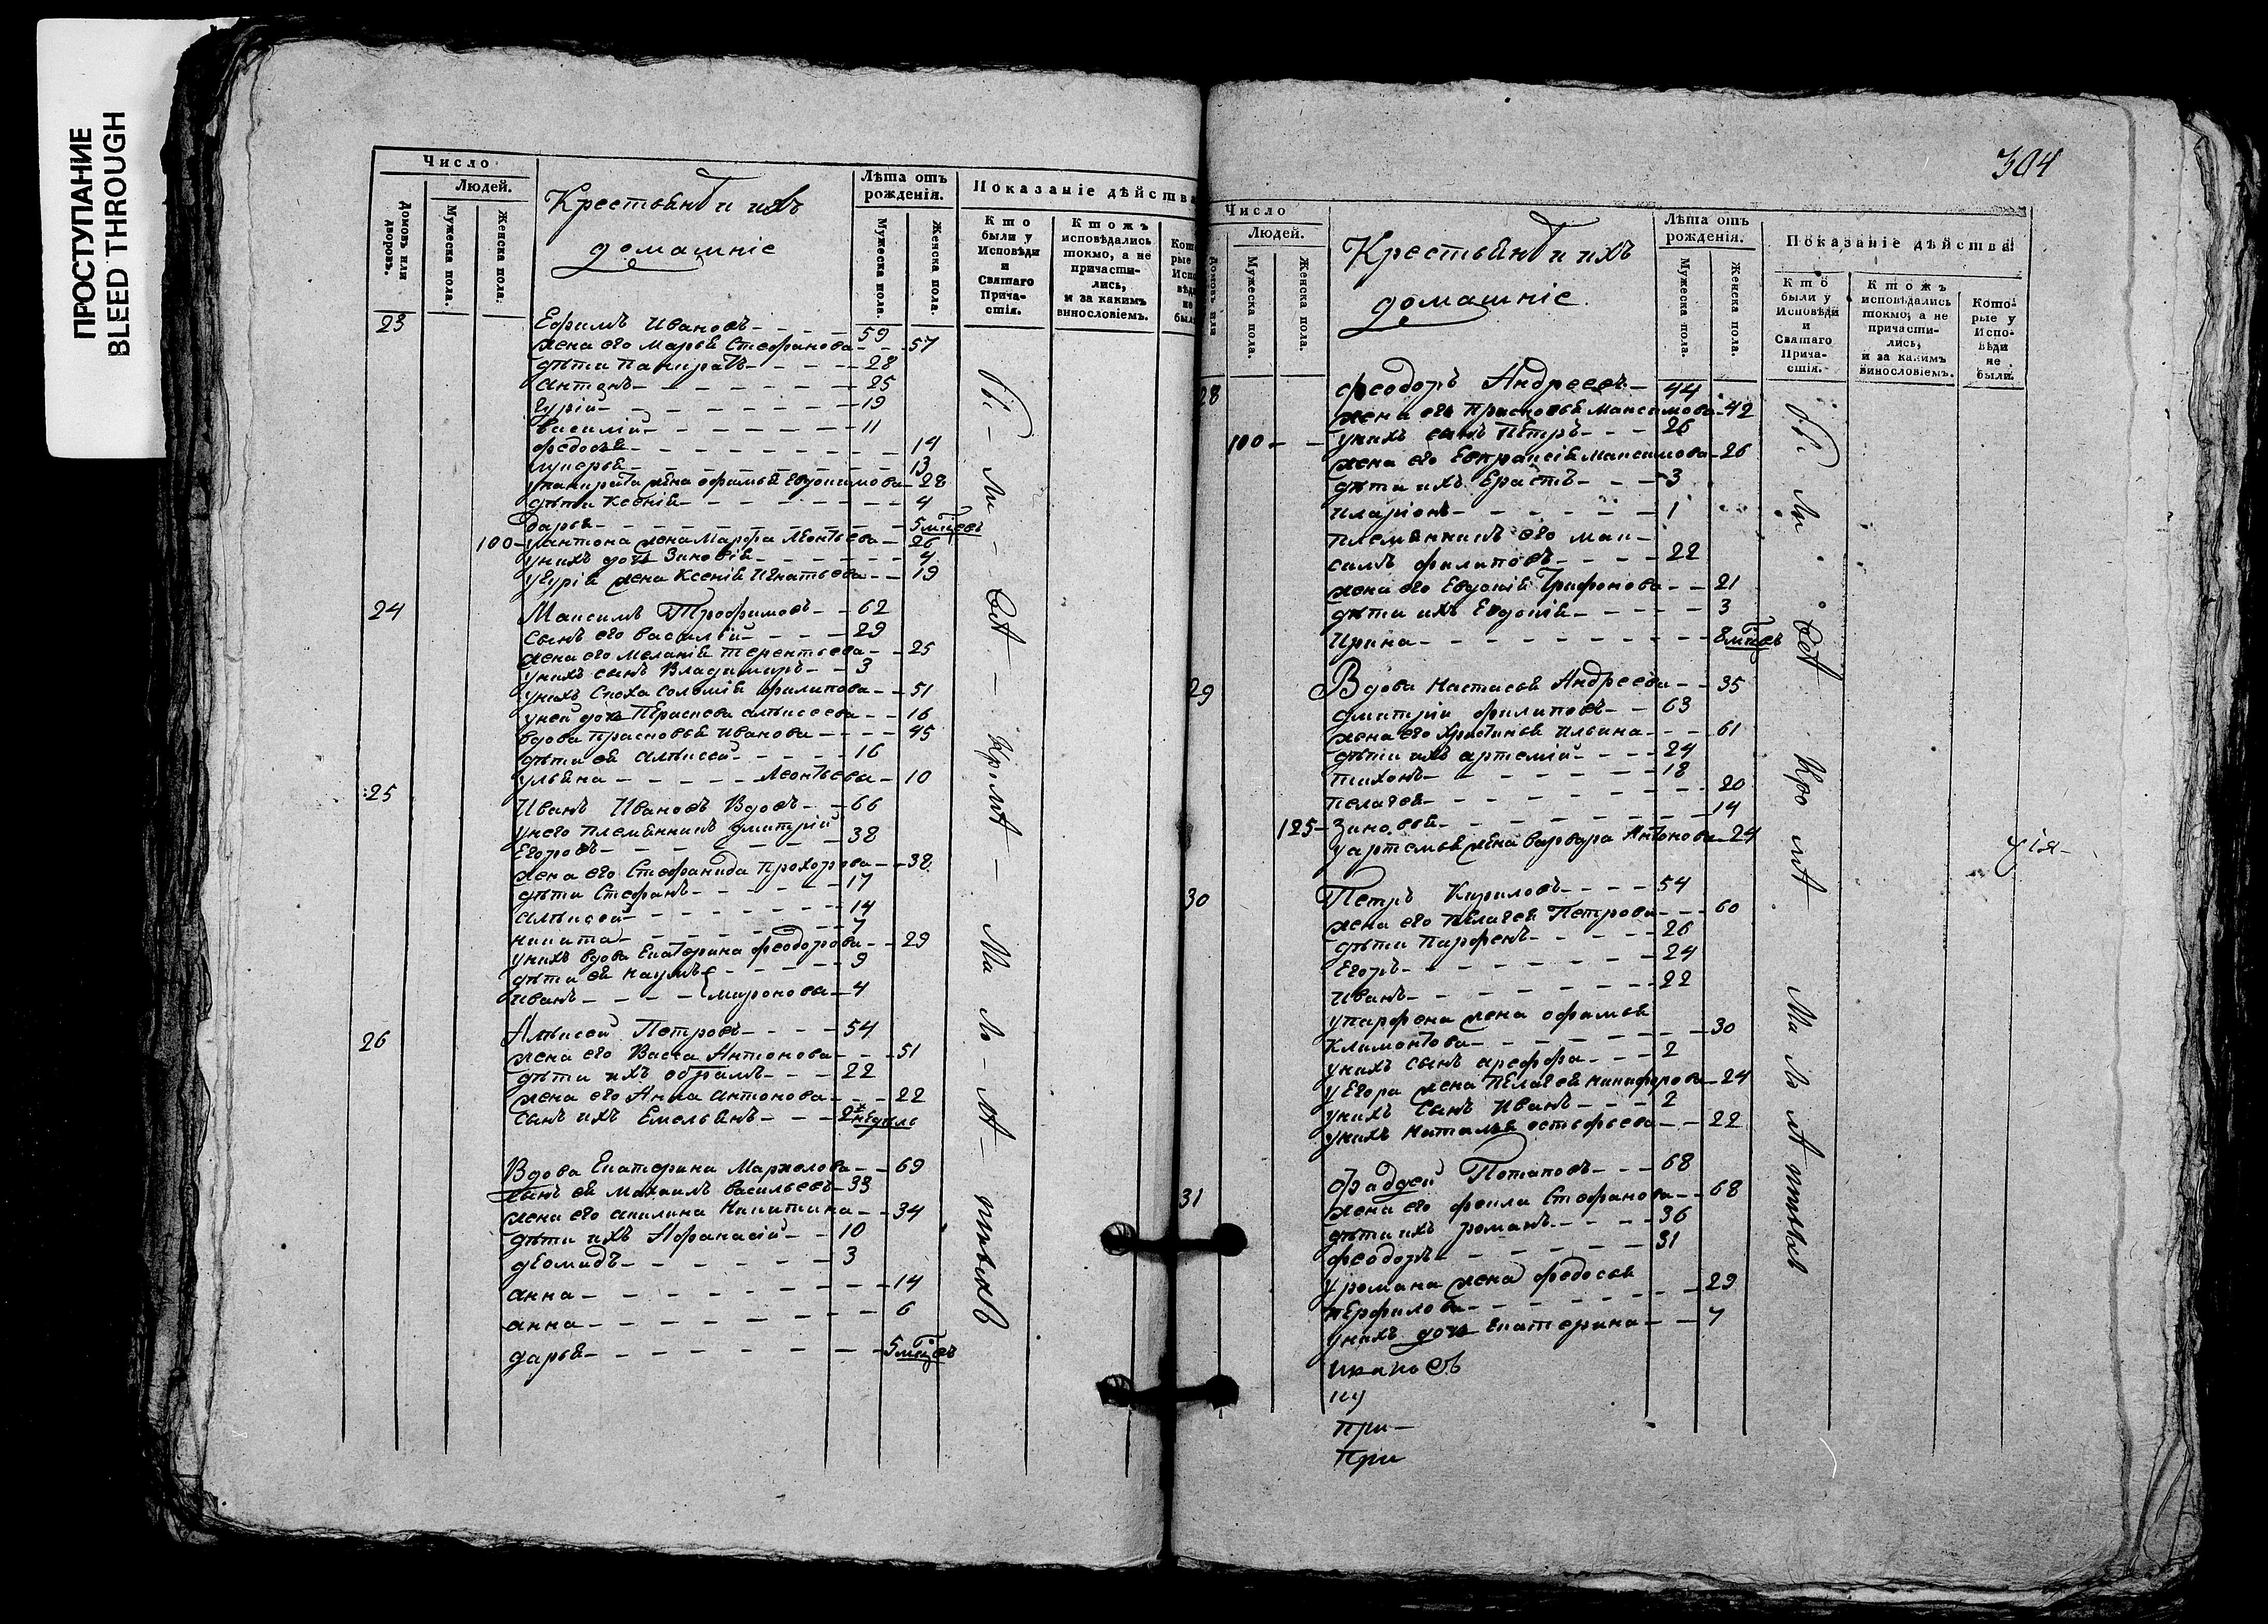 ПРОСТУПАНИЕ
BLEED THROUGH
Число
Людей.
Домовъ или дворовъ.
Мужеска пола.
Женска пола.
Крестьянѣ и ихъ
домашніе
Лѣта отъ рожденія.
Мужеска пола.
Женска пола.
Показаніе дѣйства
Кто были у Исповѣди и Святаго Причастія.
Ктожъ исповѣдались токмо, а не причастились, и за какимъ винословіемъ.
23 Ефимъ Ивановъ - 59
жена его Марья Стефанова - 57
дѣти Панкратъ - 28
Антонъ - 25
Гурій - 19
Василій - 11
Федосья - 14
Лукерья - 13
у Панкрата жена Офимья Евдокимова - 28
дѣти Ксенія - 4
Дарья - 5 мцевъ
100 - у Антона жена Марфа Леонтьева - 26
у нихъ дочь Зиновія - 4
у Гурія жена Ксенія Игнатьева - 19
24 Максимъ Трофимовъ - 62
сынъ его Василій - 29
жена его Меланія Терентьева - 25
у нихъ сынъ Владимиръ - 3
у нихъ сноха Соломія Филипова - 51
у ней дочь Параскева Алѣксеева - 16
вдова Прасковья Иванова - 45
дѣти ея Алѣксей - 16
Ульяна - Леонтьева - 10
25 Иванъ Ивановъ Вдовъ - 66
у него племянникъ Дмитрій
Егоровъ - 38
жена его Стефанида Прохорова - 38
дѣти Стефанъ - 17
Алѣксей - 14
Никита - 7
у нихъ вдова Екатерина Феодорова - 29
дѣти ея Наумъ - 9
Иванъ - Миронова - 4
26 Алѣксей Петровъ - 54
жена его Васса Антонова - 51
дѣти ихъ Обрамъ - 22
жена его Анна Антонова - 22
сынъ ихъ Емельянъ - 2х недѣль
Вдова Екатерина Маркелова - 69
сынъ ея Михаилъ Васильевъ - 33
жена его Акилина Никитина - 34
дѣти ихъ Афанасій - 10
Деомидъ - 3
Анна - 14
Анна - 6
Дарья - 5 мцевъ
304
Число
Людей.
Мужеска пола.
Женска пола.
Крестьянѣ и ихъ
домашніе
Лѣта отъ рожденія.
Мужеска пола.
Женска пола.
Показаніе дѣйства
Кто были у Исповѣди и Святаго Причастія.
Ктожъ исповѣдались токмо, а не причастились, и за какимъ винословіемъ.
Которые у Исповѣди не были.
28 Феодоръ Андреевъ - 44
жена его Прасковья Максимова - 42
100 - у нихъ сынъ Петръ - 26
жена его Евпраксія Максимова - 26
дѣти ихъ Ерастъ - 3
Иларіонъ - 1
племянникъ его Мак-
симъ Филиповъ - 22
жена его Евдокія Трифонова - 21
дѣти ихъ Евдокія - 3
Ирина - 8 мцевъ
29 Вдова Настасья Андреева - 35
Дмитрій Филиповъ - 63
жена его Христинья Ильина - 61
дѣти ихъ Артемій - 24
Тихонъ - 18
Пелагея - 20
125 - Зиновья - 14
у Артемья жена Варвара Антонова - 24
30 Петръ Кириловъ - 54
жена его Пелагея Петрова - 60
дѣти Парфенъ - 26
Егоръ - 24
Иванъ - 22
у Парфена жена Офимья
Климонтова - 30
у нихъ сынъ Ареффа - 2
у Егора жена Пелагея Никифорова - 24
у нихъ сынъ Иванъ - 2
у нихъ Наталья Остафьева - 22
31 Фаддей Потаповъ - 68
жена его Фекла Стефанова - 68
дѣти ихъ Романъ - 36
Феодоръ - 31
у Романа жена Федосья
Перфилова - 29
у нихъ дочь Екатерина - 7
при -
при